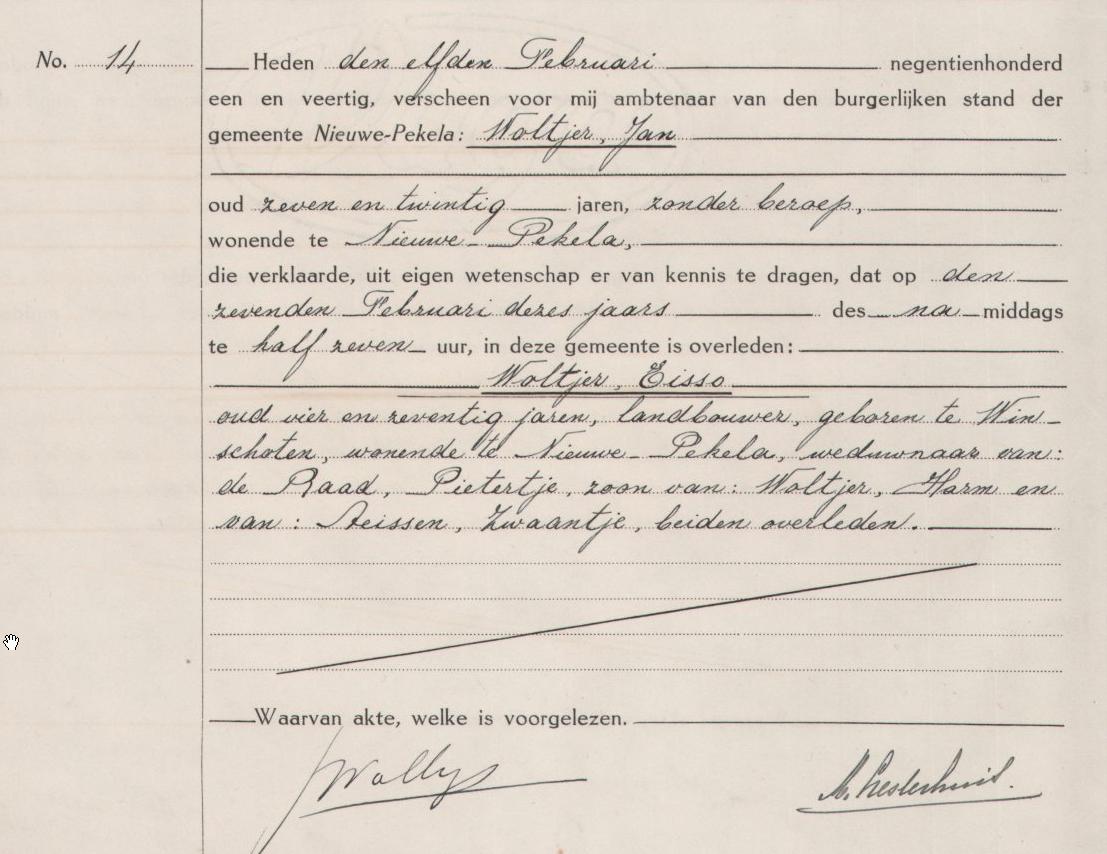 No. 14
Heden den elfden Februari negentienhonderd
een en veertig, verscheen voor mij ambtenaar van den burgerlijken stand der
gemeente Nieuwe-Pekela: Woltjer, Jan
oud zeven en twintig jaren, zonder beroep,
wonende te Nieuwe-Pekela,
die verklaarde, uit eigen wetenschap er van kennis te dragen, dat op den
zevenden Februari dezes jaars des na middags
te half zeven uur, in deze gemeente is overleden:
Woltjer, Eisso
oud vier en zeventig jaren, landbouwer, geboren te Win-
schoten, wonende te Nieuwe-Pekela, weduwnaar van:
de Raad, Pietertje, zoon van: Woltjer, Harm en
van: Aeissen, Zwaantje, beiden overleden.
Waarvan akte, welke is voorgelezen.